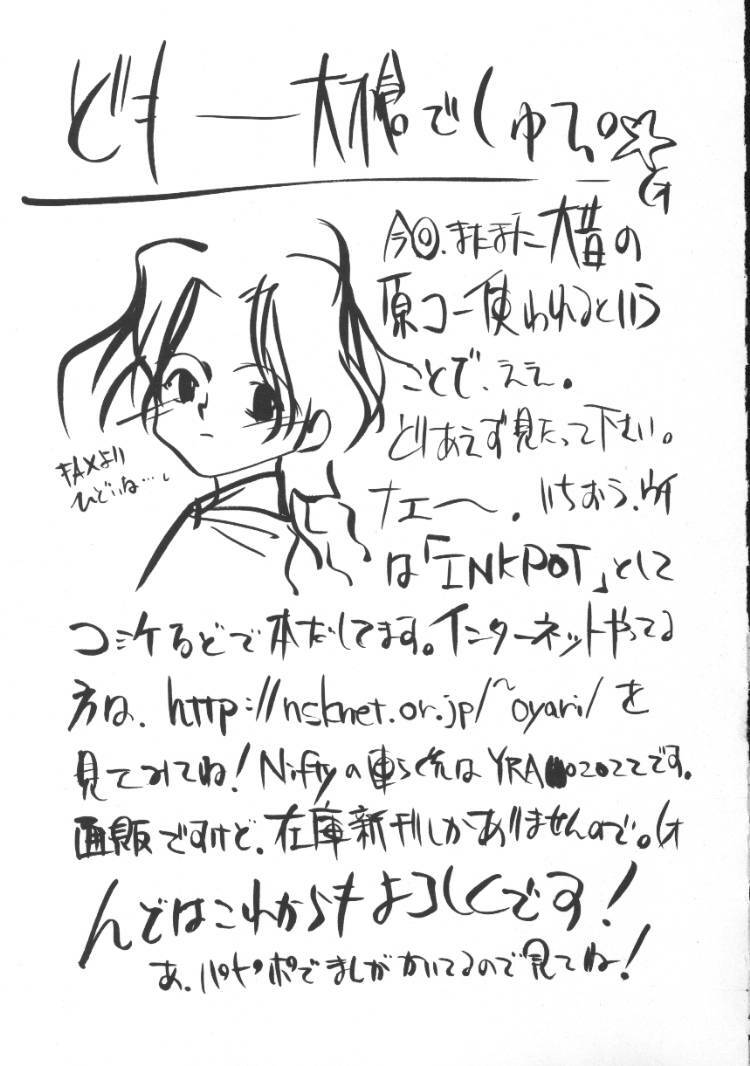 ども──大槍でしゅう。☆
(オ
今回、またまた大昔の
原コー使われるという
ことで、ええ。
とりあえず見たって下さい。
FAXより
ひどいね…。
ナエ〜。いちおう、ウチ
は「INKPOT」として
コミケなどで本だしてます。インターネットやってる
方は、http://nsknet.or.jp/~oyari/を
見てみてね!Niftyの連らく先はYRA02022です。
通販ですけど、在庫新刊しかありませんので。(オ
んではこれからもよろしくです!
あ、パトポポでまんがかいてるので見てね!